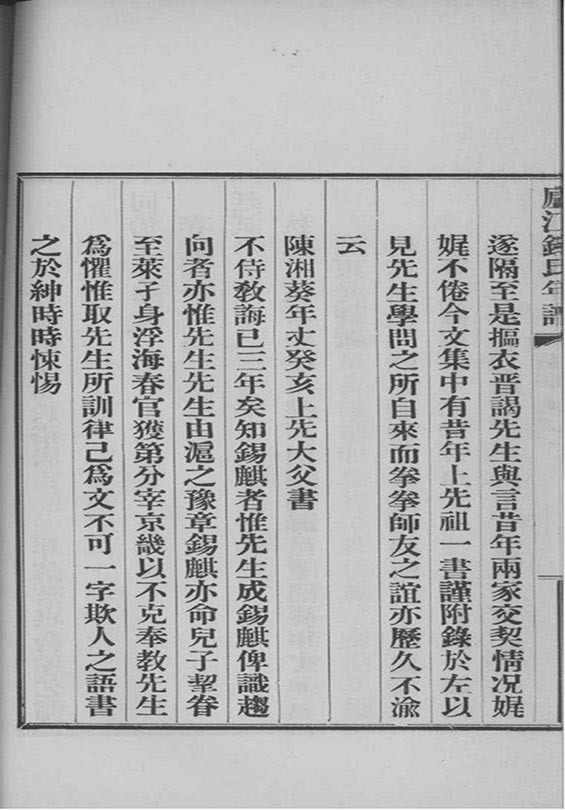 廬江錢氏年譜
遂隔至是摳衣晋謁先生與言昔年兩家交契情况娓
娓不倦今文集中有昔年上先祖一書謹附錄於左以
見先生學問之所自來而拳拳師友之誼亦歷久不渝
云
陳湘葵年丈癸亥上先大父書
不侍敎誨已三年矣知錫麒者惟先生成錫麒俾識趨
向者亦惟先生先生由滬之豫章錫麒亦命兒子挈眷
至萊孑身浮海春官獲第分宰京畿以不克奉教先生
爲懼惟取先生所訓律己爲文不可一字欺人之語書
之於紳時時悚惕